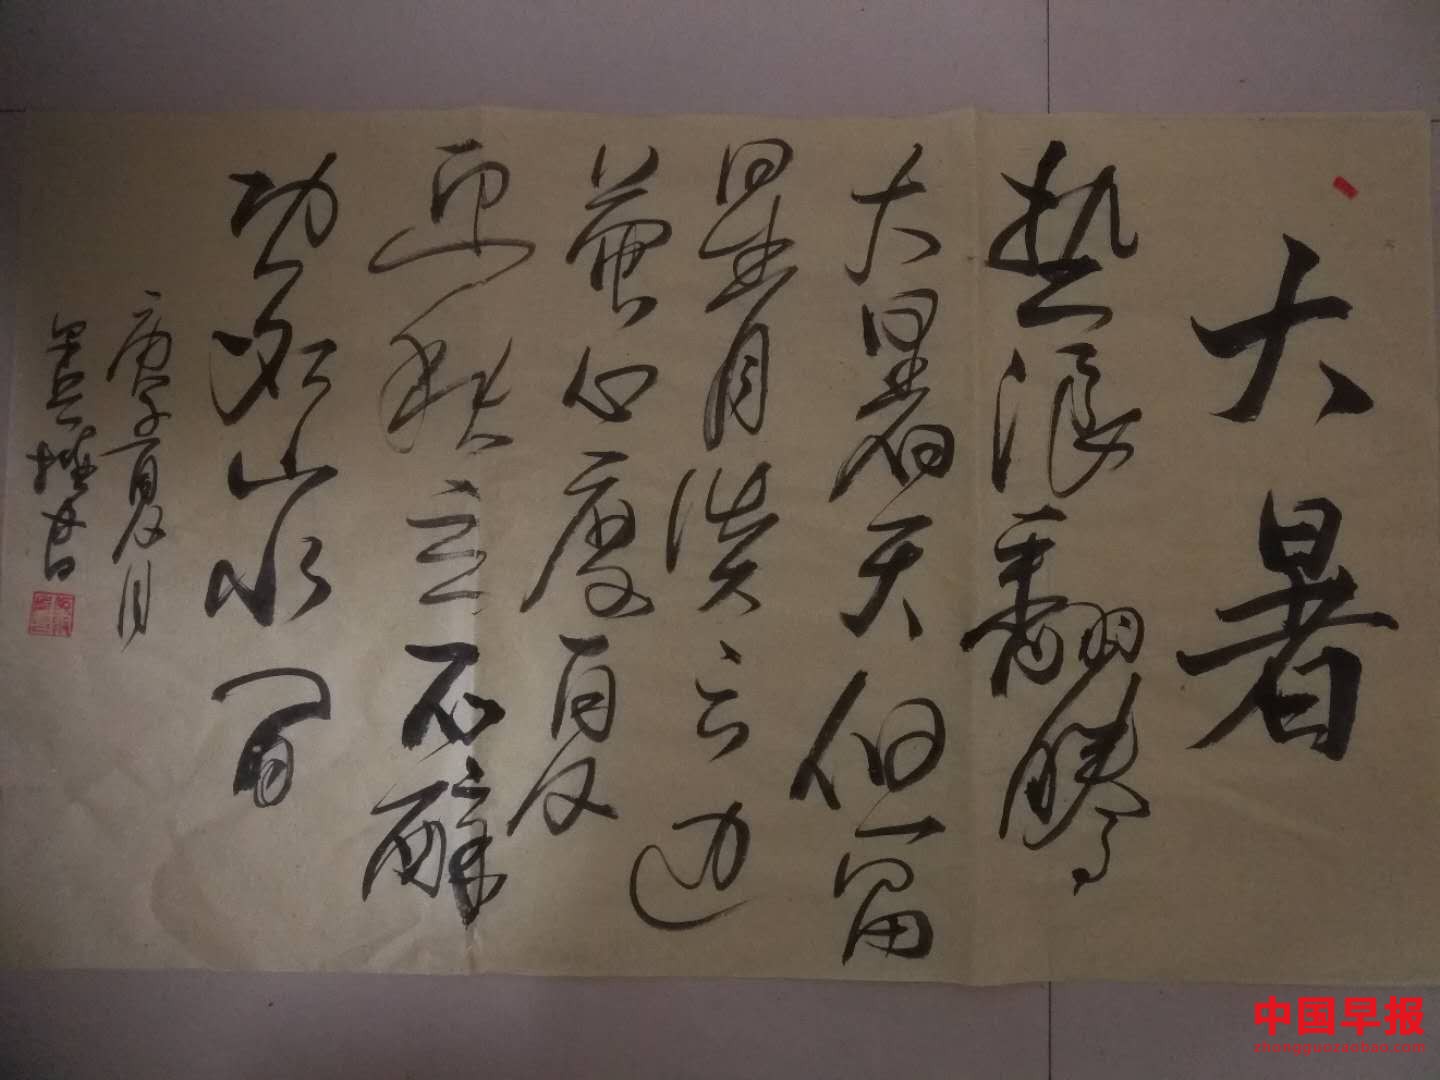 大暑
热浪翻腾
大暑天但留
星月淡云边
苦心度夏
迎秋立不醉
功名山水间
庚子夏月
中国早报
zhongguozaobao.com